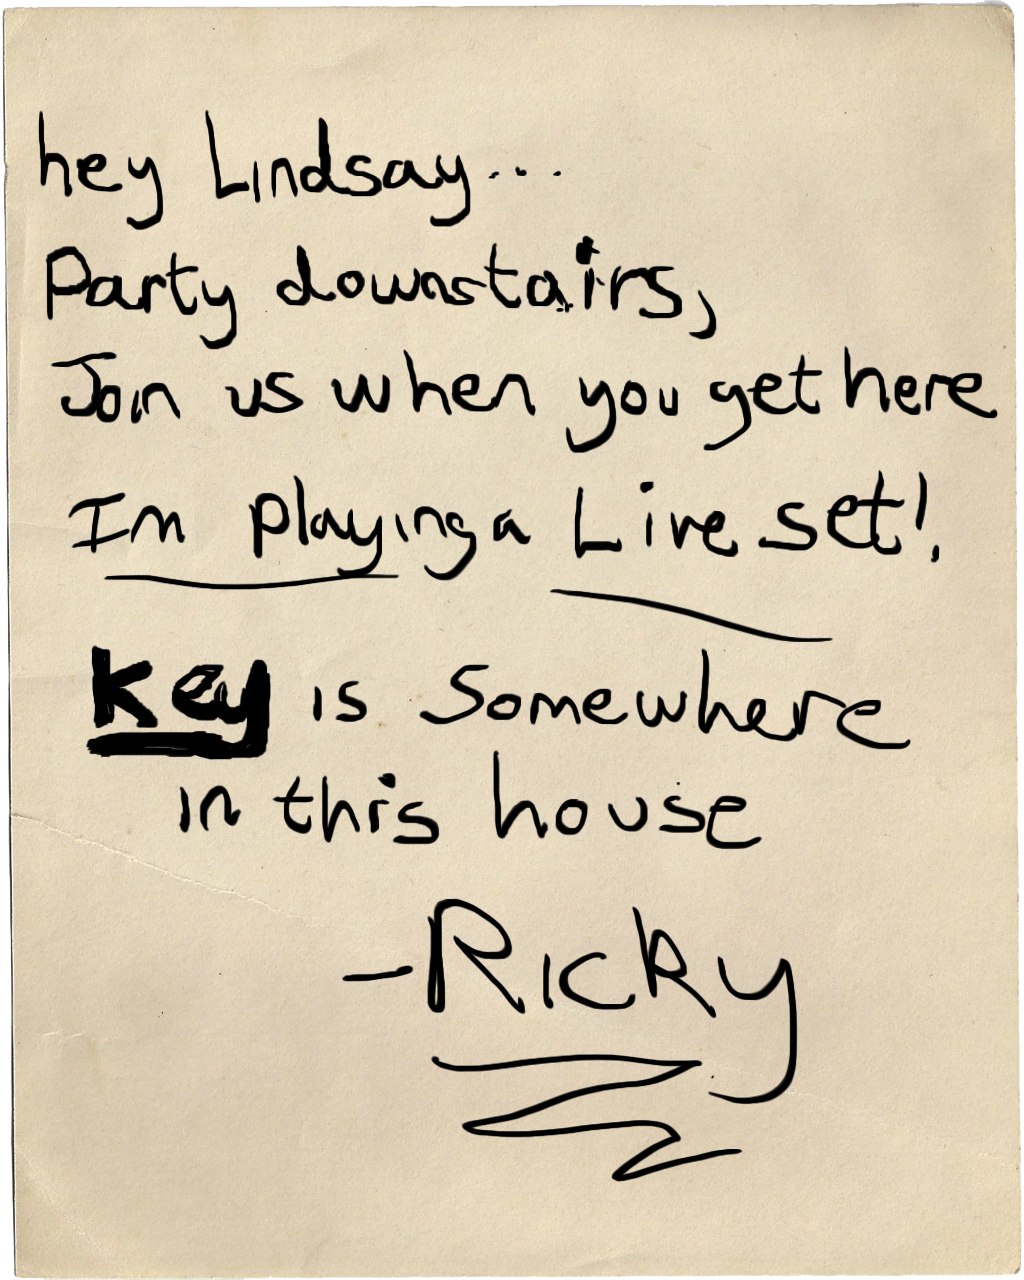 hey Lindsay...
Party downstairs,
Join us when you get here
Im playing a Live set!
Key is Somewhere
in this house
-Ricky